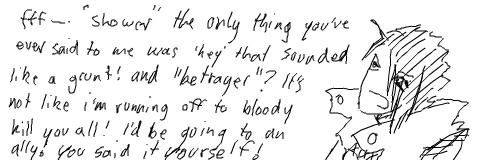 fff—. "shower" the only thing you've
ever said to me was 'hey' that sounded
like a grunt! and "betrayer"? It's
not like i'm running off to bloody
kill you all! I'd be going to an
ally! you said it yourself!